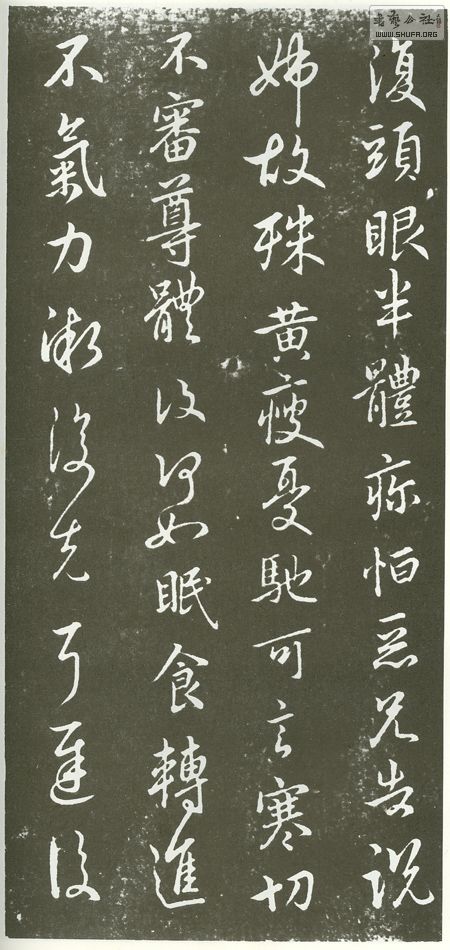 書藝公社
WWW.SHUFA.ORG
復頭眼半體惡兄告說
姊故殊黃瘦憂馳可言寒切
不審尊體復何如眠食轉進
不氣力漸復先耳遲復